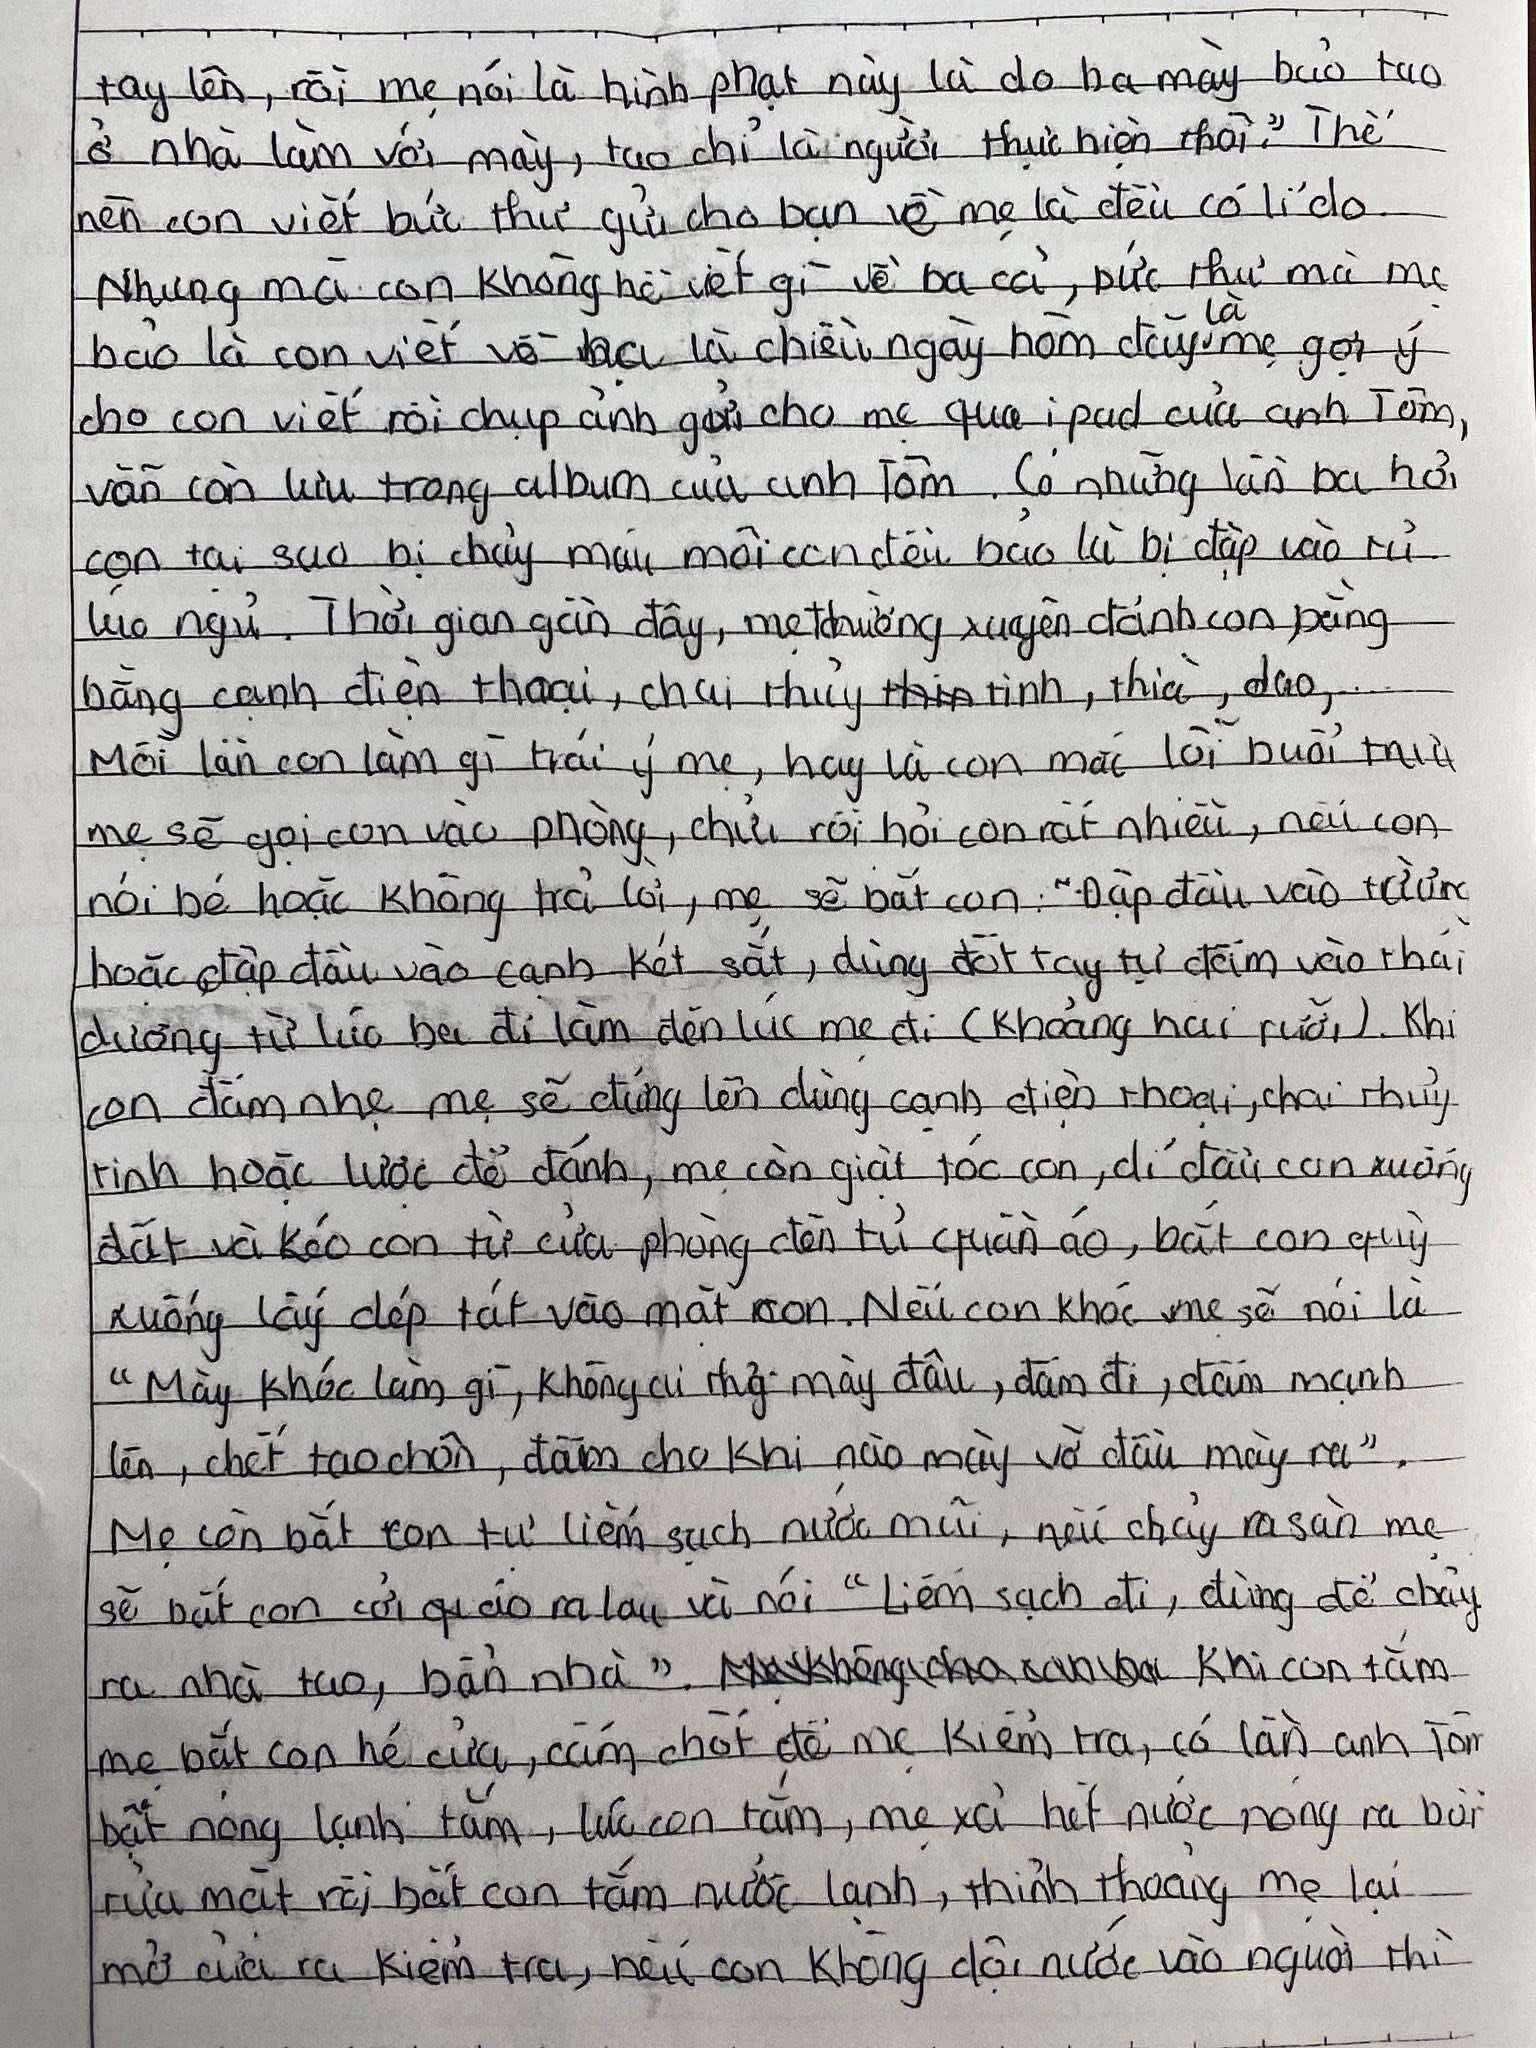 tay lên, rồi mẹ nói là hình phạt này là do ba mày bảo tao
ở nhà làm với mày, tao chỉ là người thực hiện thôi." Thế
nên con viết bức thư gửi cho bạn về mẹ là đều có lí do
Nhưng mà con không hề viết gì về ba cả, bức thư mà mẹ
bảo là con viết về ba là chiều ngày hôm đấy là mẹ gợi ý
cho con viết rồi chụp ảnh gửi cho mẹ qua ipad của anh Tôm,
vẫn còn lưu trong album của anh Tôm. Có những lần ba hỏi
con tại sao bị chảy máu môi con đều bảo là bị đập vào tủ
lúc ngủ. Thời gian gần đây, mẹ thường xuyên đánh con bằng
bằng cạnh điện thoại, chai thủy tinh, thìa, dao,....
Mỗi lần con làm gì trái ý mẹ, hay là con mắc lỗi buổi trưa
mẹ sẽ gọi con vào phòng, chửi rồi hỏi con rất nhiều, nếu con
nói bé hoặc không trả lời, mẹ sẽ bắt con: "Đập đầu vào tường
hoặc đập đầu vào cạnh két sắt, dùng đốt tay tự đấm vào thái
dương từ lúc ba đi làm đến lúc mẹ đi (khoảng hai rưỡi). Khi
con đấm nhẹ mẹ sẽ đứng lên dùng cạnh điện thoại, chai thủy
tinh hoặc lược để đánh, mẹ còn giật tóc con, dí đầu con xuống
đất và kéo con từ cửa phòng đến tủ quần áo, bắt con quỳ
xuống lấy dép tát vào mặt con. Nếu con khóc mẹ sẽ nói là
"Mày khóc làm gì, không ai thở mày đâu, đấm đi, đấm mạnh
lên, chết tao chôn, đấm cho khi nào mày vỡ đầu mày ra".
Mẹ còn bắt con tự liếm sạch nước mũi, nếu chảy ra sàn mẹ
sẽ bắt con cởi áo ra lau và nói "Liếm sạch đi, đừng để chảy
ra nhà tao, bẩn nhà". Khi con tắm
mẹ bắt con hé cửa, cấm chốt để mẹ kiểm tra, có lần anh Tôm
bật nóng lạnh tắm, lúc con tắm, mẹ xả hết nước nóng ra bồn
rửa mặt rồi bắt con tắm nước lạnh, thỉnh thoảng mẹ lại
mở cửa ra kiểm tra, nếu con không dội nước vào người thì